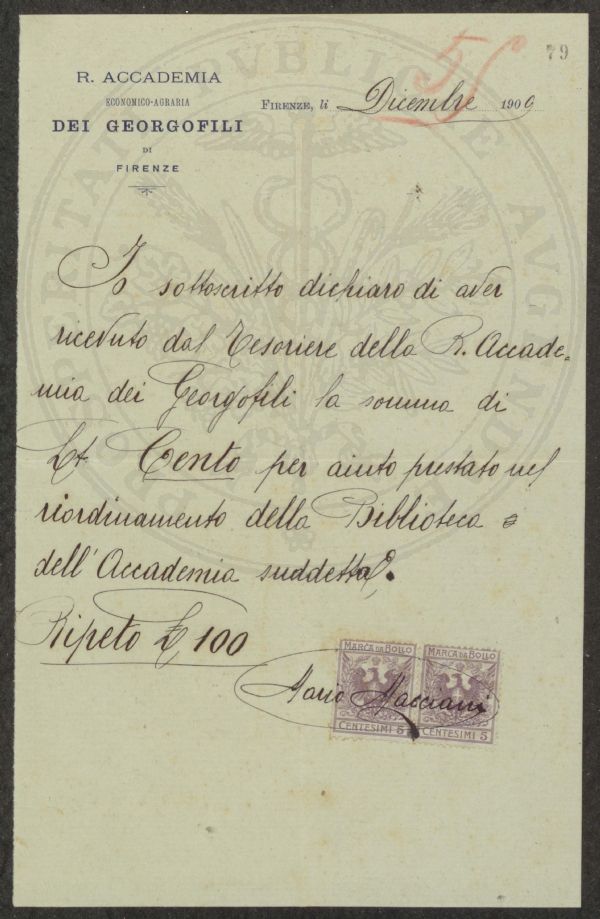 79
55
R. ACCADEMIA
ECONOMICO-AGRARIA
DEI GEORGOFILI
DI
FIRENZE
FIRENZE, li Dicembre 1900
Io sottoscritto dichiaro di aver
ricevuto dal Tesoriere della R. Accade-
mia dei Georgofili la somma di
Lt Cento per aiuto prestato nel
riordinamento della Biblioteca
dell'Accademia suddetta.
Ripeto £ 100
MARCA DA BOLLO MARCA DA BOLLO
Mario Macciani
CENTESIMI 5 CENTESIMI 5
PROSPERITATI PVBLICAE AVGENDAE